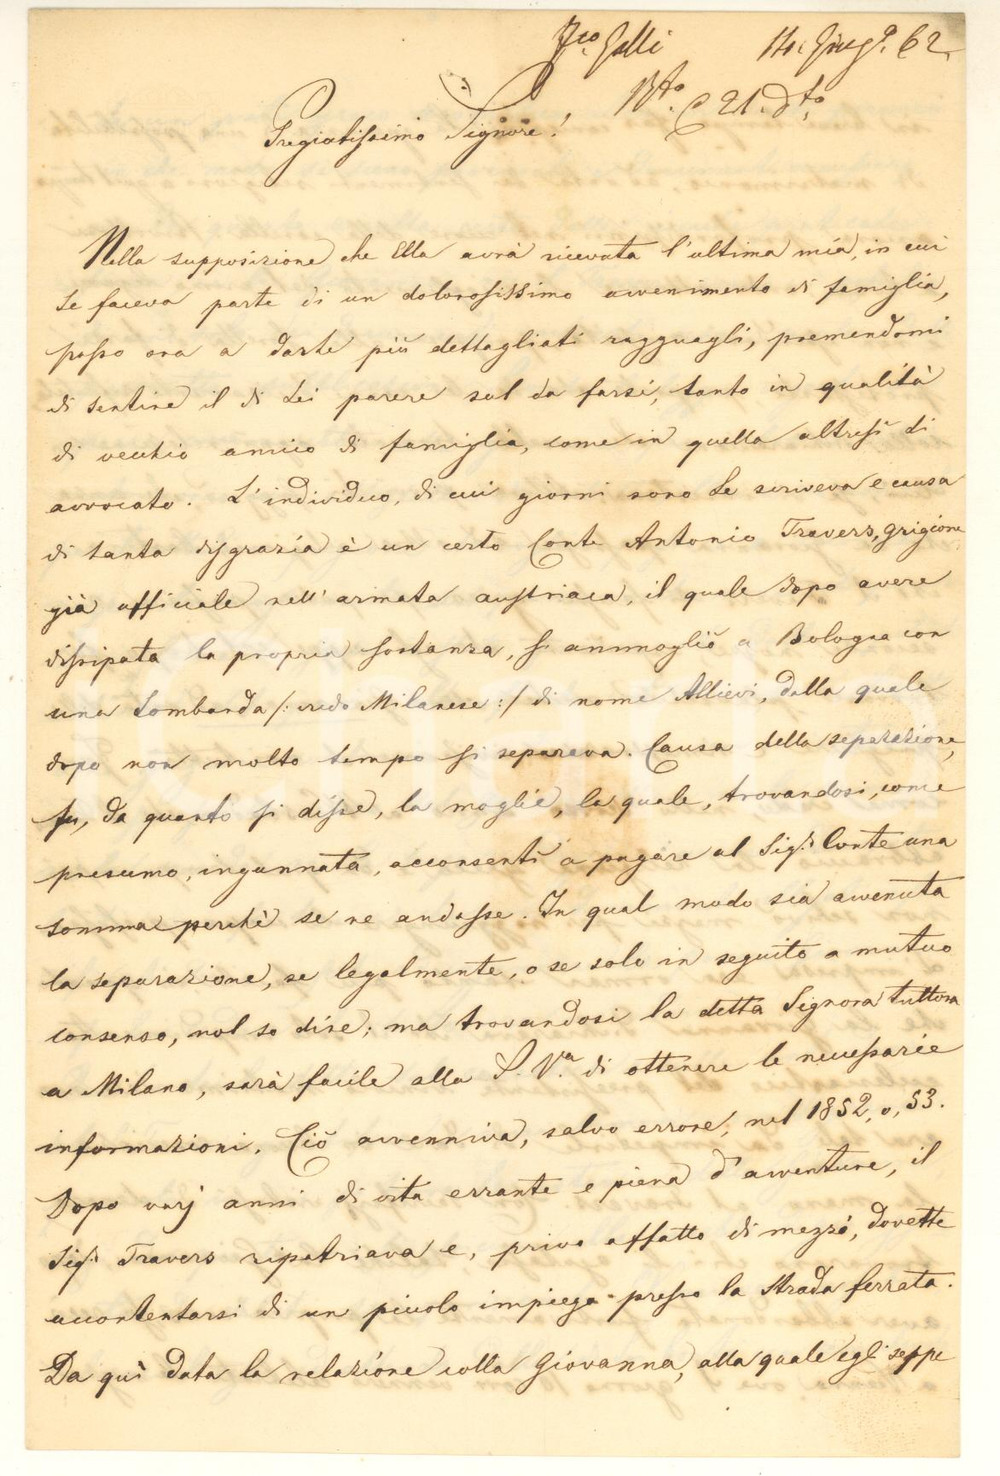 Fco. Galli 14. Giugo. 62.
Rto. C 21. do.
Pregiatissimo Signore!
Nella supposizione che Ella avrà ricevuta l'ultima mia, in cui
Le faceva parte di un dolorosissimo avvenimento di famiglia,
passo ora a darle più dettagliati ragguagli, premendomi
di sentire il di Lei parere sul da farsi, tanto in qualità
di vecchio amico di famiglia, come in quella altresì di
avvocato. L'individuo, di cui giorni sono Le scriveva e causa
di tanta disgrazia è un certo Conte Antonio Travers, grigione,
già ufficiale nell'armata austriaca, il quale dopo avere
dissipata la propria sostanza, si ammogliò a Bologna con
una Lombarda /: credo Milanese :/ di nome Allievi, dalla quale
dopo non molto tempo si separava. Causa della separazione,
fu, da quanto si disse, la moglie, la quale, trovandosi, come
presumo, ingannata, acconsentì a pagare al Sigr. Conte una
somma perchè se ne andasse. In qual modo sia avvenuta
la separazione, se legalmente, o se solo in seguito a mutuo
consenso, nol so dire; ma trovandosi la detta Signora tuttora
a Milano, sarà facile alla S. Va. di ottenere le necessarie
informazioni. Ciò avveniva, salvo errore, nel 1852, o, 53.
Dopo varj anni di vita errante e piena d'avventure, il
Sigr. Travers ripatriava e, privo affatto di mezzi, dovette
accontentarsi di un piccolo impiego presso la Strada ferrata.
Da quì data la relazione colla Giovanna, alla quale egli seppe